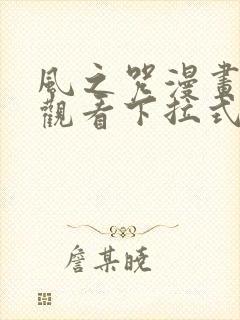 風之咒漫畫
觀看下拉式
詹某曉